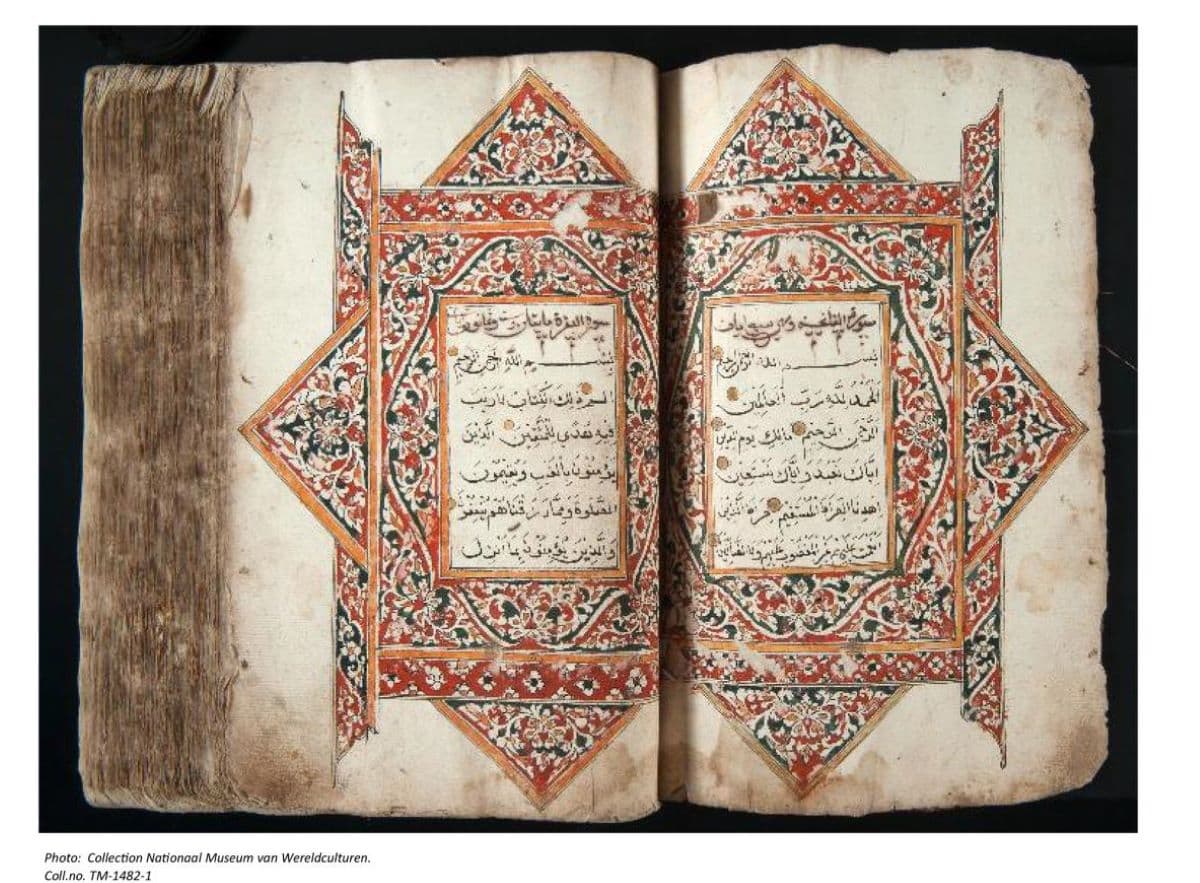 سورة الفاتحة وهي سبع ايات
بسم الله الرحمن الرحيم
الحمد لله رب العلمين
الرحمن الرحيم مالك يوم الدين
اياك نعبد واياك نستعين
اهدنا الصراط المستقيم صراط الذين
انعمت عليهم غير المغضوب عليهم ولا الضالين
سورة البقرة مايتان وست
بسم الله الرحمن الرحيم
الم ذلك الكتاب لا ريب
فيه هدى للمتقين الذين
يؤمنون بالغيب ويقيمون
الصلوة ومما رزقناهم ينفقون
والذين يؤمنون بما انزل
Photo: Collection Nationaal Museum van Wereldculturen.
Coll.no. TM-1482-1